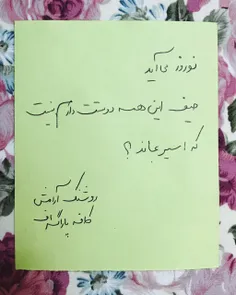 نوروز می‌آید
حیف این همه دوستت دارم نیست
که اسیر بماند؟
روشنک آرامش
کافه پاراگراف